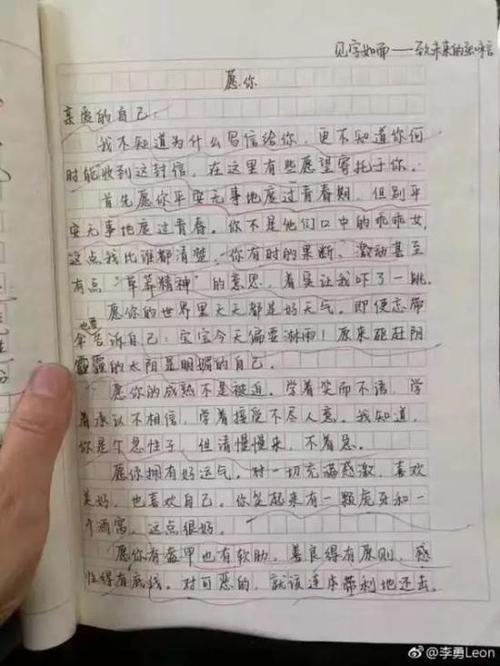 见字如面——致未来的
愿你
亲爱的自己：
我不知道为什么写信给你，更不知道你何
时能收到这封信，在这里有些愿望寄托于你。
首先愿你平安无事地度过青春期，但别平
安无事地度过青春。你不是他们口中的乖乖女，
这点我比谁都清楚，你有时的果断、激动甚至
有点“草莽精神”的意思，着实让我吓了一跳。
愿你的世界里天天都是好天气。即使忘带
伞也要告诉自己：宝宝今天偏要淋雨！原来驱赶阴
霾的太阳是明媚的自己。
愿你的成熟不是被迫。学着笑而不语，学
着承认不相信，学着接受不尽人意。我知道，
你是个急性子，但请慢慢来，不着急。
愿你拥有好运气。对一切充满感激，喜欢
美好，也喜欢自己。你笑起来有一颗虎牙和一
个酒窝，这点很好。
愿你有盔甲也有软肋。善良得有原则，感
性得有底线。对可恶的，就该连本带利地还击
@李勇Leon